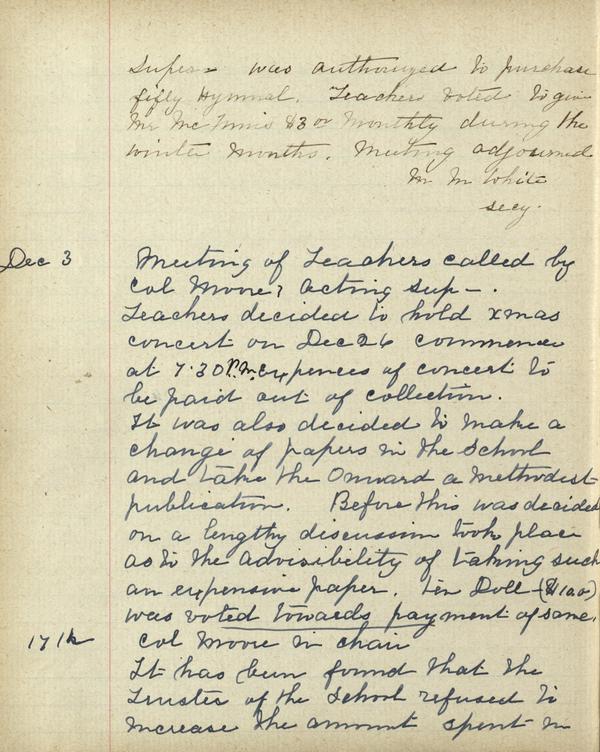 Super= was authorized to purchase
fifty Hymnal. Teacher voted to give
Mr McInnis $3 00 Monthly during the
winter months. Meeting adjourned
M M White
secy.
Dec 3 Meeting of Teachers called by
Col Moore, acting sup-.
Teachers decided to hold xmas
concert on Dec 26 commence
at 7.30 P.M. expences of concert to
be paid out of collection.
It was also decided to make a
change of papers in the School
and take the Onward a Methodist
publication. Before this was decided
on a lengthy discussion took place
as to the advisibility of taking such
an expensive paper. Ten Doll ($10.00)
was voted towards payment of same.
17th Col Moore in chair
It has been found that the
Trustee of the School refused to
increase the amount spent in